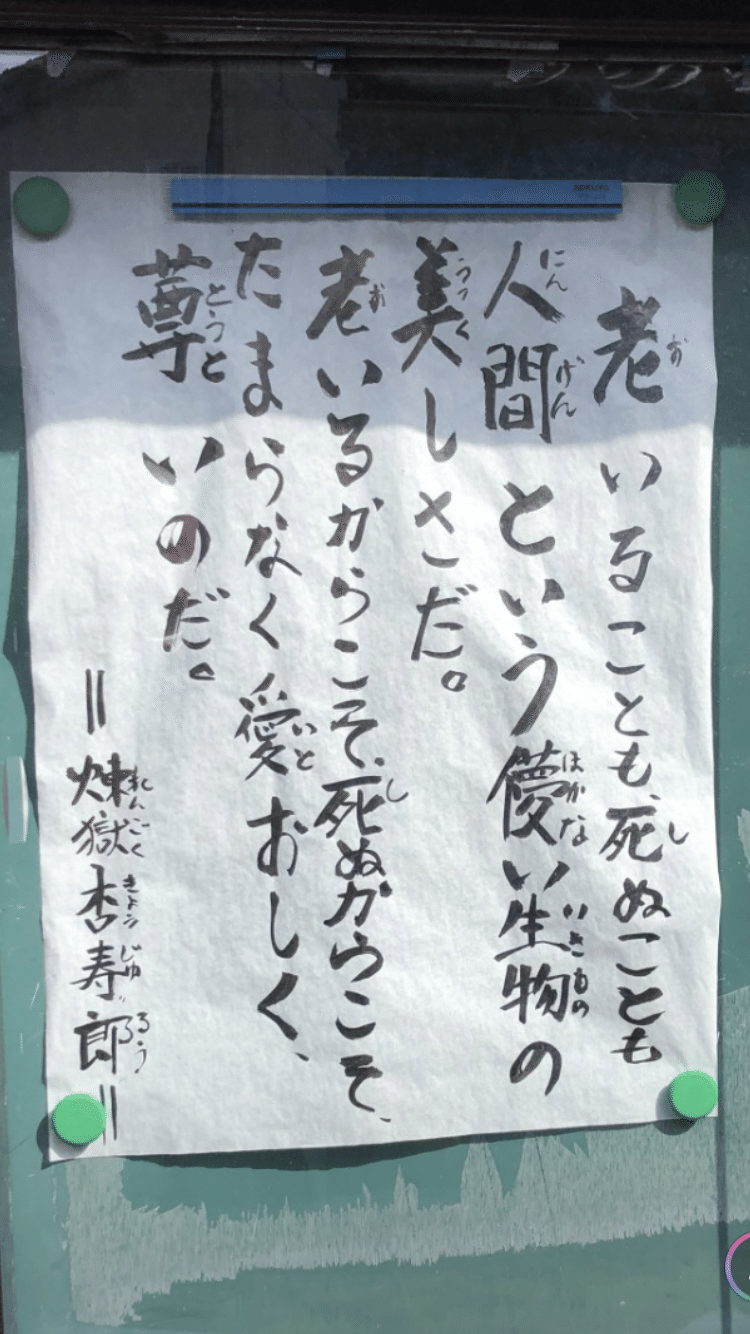 老いることも、死ぬことも
人間という儚い生物の
美しさだ。
老いるからこそ、死ぬからこそ、
たまらなく愛おしく、
尊いのだ。
=煉獄杏寿郎=
お
し
にん
げん
はかな
いきもの
うつく
お
し
いと
とうと
れんごく
きょうじゅ
ろう